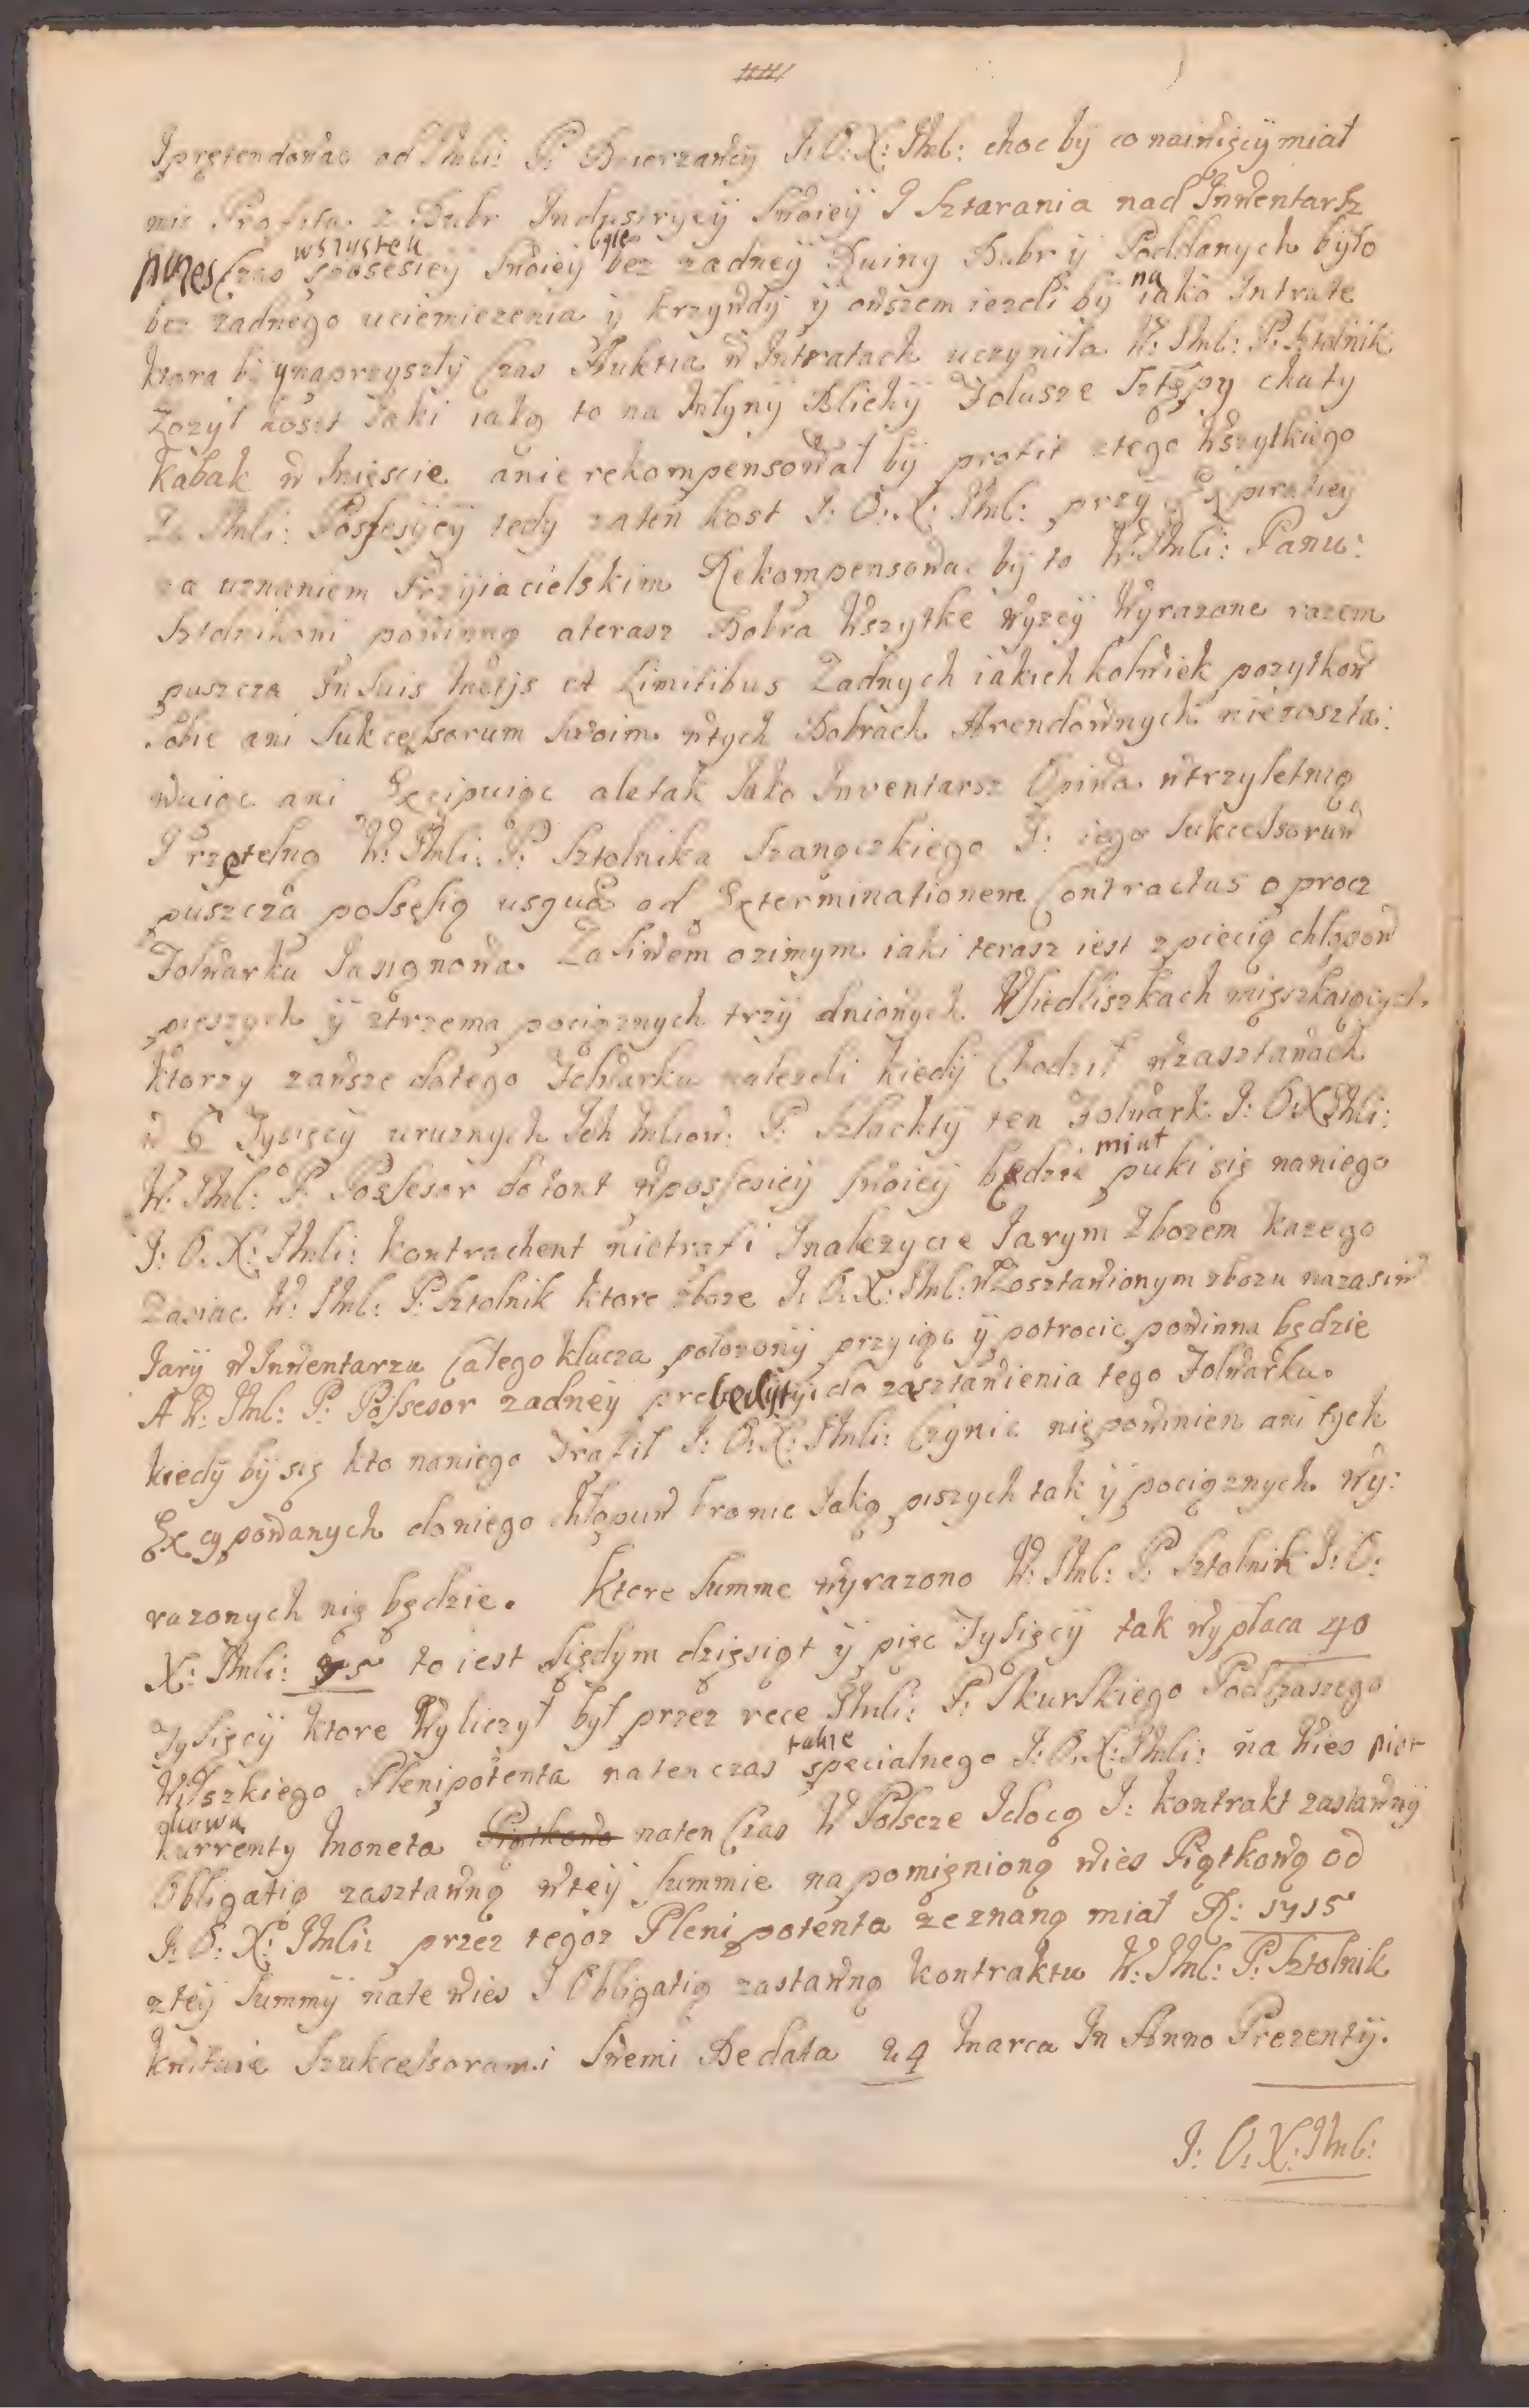 Ipretendowac od Jmli: P: Dzierzawcÿ J: O: X: Jml: choc bÿ co naiwięcÿ miał
miec Profitu z Dubr Industryeÿ Swoieÿ I Sztarania nad Inwentarsz
przes Czas wszystek possesieÿ Swoieÿ byle bez zadneÿ Ruiny Dubr ÿ Poddanych było
bez zadnego uciemiezenia ÿ krzywdÿ ÿ owszem iezeli bÿ na iako Intrate
ktora bÿ naprzyszłÿ Czas Auktia w Intratach uczyniła W: Jml: P: Sztolnik
Zozył koszt Jaki iako to na Młynÿ Blichÿ Folusze Sztępy chaty
Kabak w Mieście anie rekompensował bÿ profit ztego Wszytkiego
Za Jmli: Possesÿcÿ tedy zaten kost J: O: X: Jml: przÿ Expiratieÿ
za uznaniem Przÿiacielskim Rekompensowac bÿ to W: Jmli: Panu:
Sztolnikowi powinno aterasz Dobra Wszytke wÿzeÿ Wyrazone razem
puszcza In Suis Metÿs et Limitibus Zadnych iakichkolwiek pozytkow
Sobie ani Sukcessorum Swoim wtych Dobrach Arendownych niezoszta:
wuiąc ani Excipuiąc aletak Jako Inventarsz Opiwa wtrzyletnią
I rzetelną W: Jmli: P: Sztolnika Szanockiego I: iego Sukcessoruw
puszcza possesią usque ad Exterminationem Contractus oprocz
Folwarku Jasionowa Zasiwem ozimym iaki terasz iest zpiecią chłopow
pieszych ÿ ztrzema pociąznych trzÿ dniowych Wsiedliszkach mięszkaiących,
ktorzy zawsze dotego Folwarku nalezeli kiedÿ Chodził wzasztawach
w 6 Tysięcÿ uruznych Ich Mliow: P: Szlachtÿ ten Folwark J: O: X Jmli:
W: Jml: P: Possesor dotont wpossesieÿ Swoieÿ będzie miał puki się naniego
J: O: X: Jmli: kontrachent nietrafi Inalezycie Jarym Zbozem kazego
Zasiac W: Jml: P: Sztolnik ktore zboze J: O: X: Jml: WZosztawionym zbozu nazasiw
Jarÿ w Inwentarzu Całego klucza położonÿ przyiąc ÿ potrocic powinna będzie
A W: Jml: P: Possesor zadneÿ prebedytÿi do zasztawienia tego Folwarku.
kiedÿ bÿ się kto naniego Trafil J: O: X: Jmli: Czynic niepowinien ani tych
Excypowanych doniego chłopuw bronic Jako piszych tak ÿ pociąznych wÿ:
razonych nię będzie. Ktore Summe wyrazono W: Jml: P: Sztolnik J: O:
X: Jmli: 75 to iest Siędym dziesiąt ÿ pięc Tysięcÿ tak wypłaca 40
Tysięcÿ ktore Wyliczył był przez rece Jmli: P: Skurskiego PodCzaszego
Włszkiego Plenipotenta natenczas takze specialnego J: O: X: Jmli: na Wies piot
kowa kurrenty Moneta Piątkowa naten Czas W Polscze Idocą I: kontrakt zastawnÿ
Obligatią zasztawną wteÿ Summie na pomięnioną wies Piątkową od
J: O: X: Jmli: przez tegoz Plenipotenta zeznaną miał R: 1715
zteÿ Summÿ nate wies I Obligatią zastawną kontraktu W: Jml: P: Sztolnik
kwituie Szukcessorami Swemi De data 24 Marca In Anno Prezentÿ.
J: O: X: Jml: